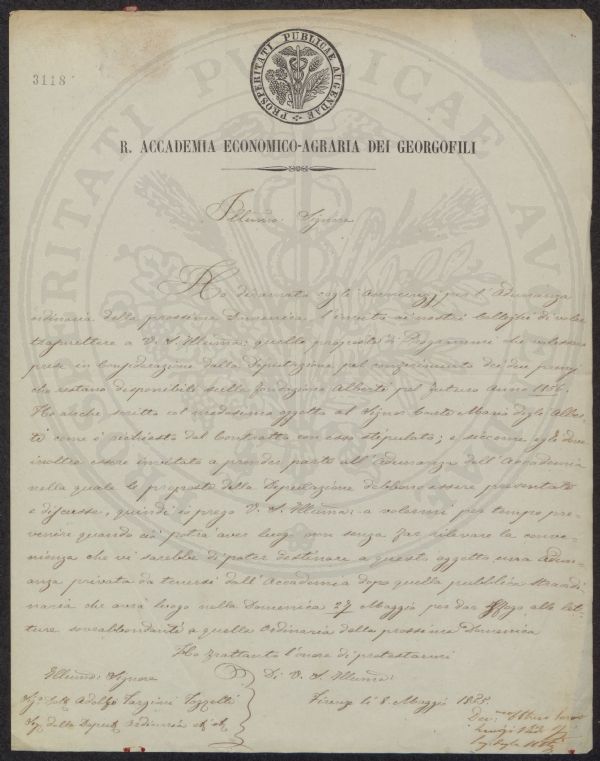 3118
PROSPERITATI PUBLICAE AUGENDAE
R. ACCADEMIA ECONOMICO-AGRARIA DEI GEORGOFILI
Illumo: Signore
Ho diramato cogli per l'Adunanza
ordinaria della prossima Domenica l'invito ai nostri Colleghi di voler
trasmettere a V. S. Illuma: quelle proposte di Programmi che volessero
prese in considerazione dalla Deputazione pel conferimento dei due premj
che restano disponibili sulla fondazione Alberti pel futuro Anno 1856.
Ho anche scritto col medesimo oggetto al Signor Conte Mario degli Alber-
ti come è richiesto dal Contratto con esso stipulato; e siccome egli deve
inoltre essere invitato a prender parte all'adunanza dell'Accademia
nella quale le proposte della Deputazione debbono essere presentate
e discusse, quindi io prego V. S. Illuma: a volermi per tempo pre-
venire quando ciò potrà aver luogo non senza far rilevare la conve-
nienza che vi sarebbe di poter destinare a questo oggetto una adun-
anza privata da tenersi dall'Accademia dopo quella pubblica straordi-
naria che avrà luogo nella Domenica 27 Maggio per dar sfogo alle let-
ture sovrabbondanti a quella Ordinaria della prossima Domenica
Ho frattanto l'onore di protestarmi
Illumo: Signore
Di V. S. Illuma:
Sigr. Dott. Adolfo Targioni Tozzetti
Firenze li 8. Maggio 1855.
Segr. della Depute. Ordinaria
Devmo